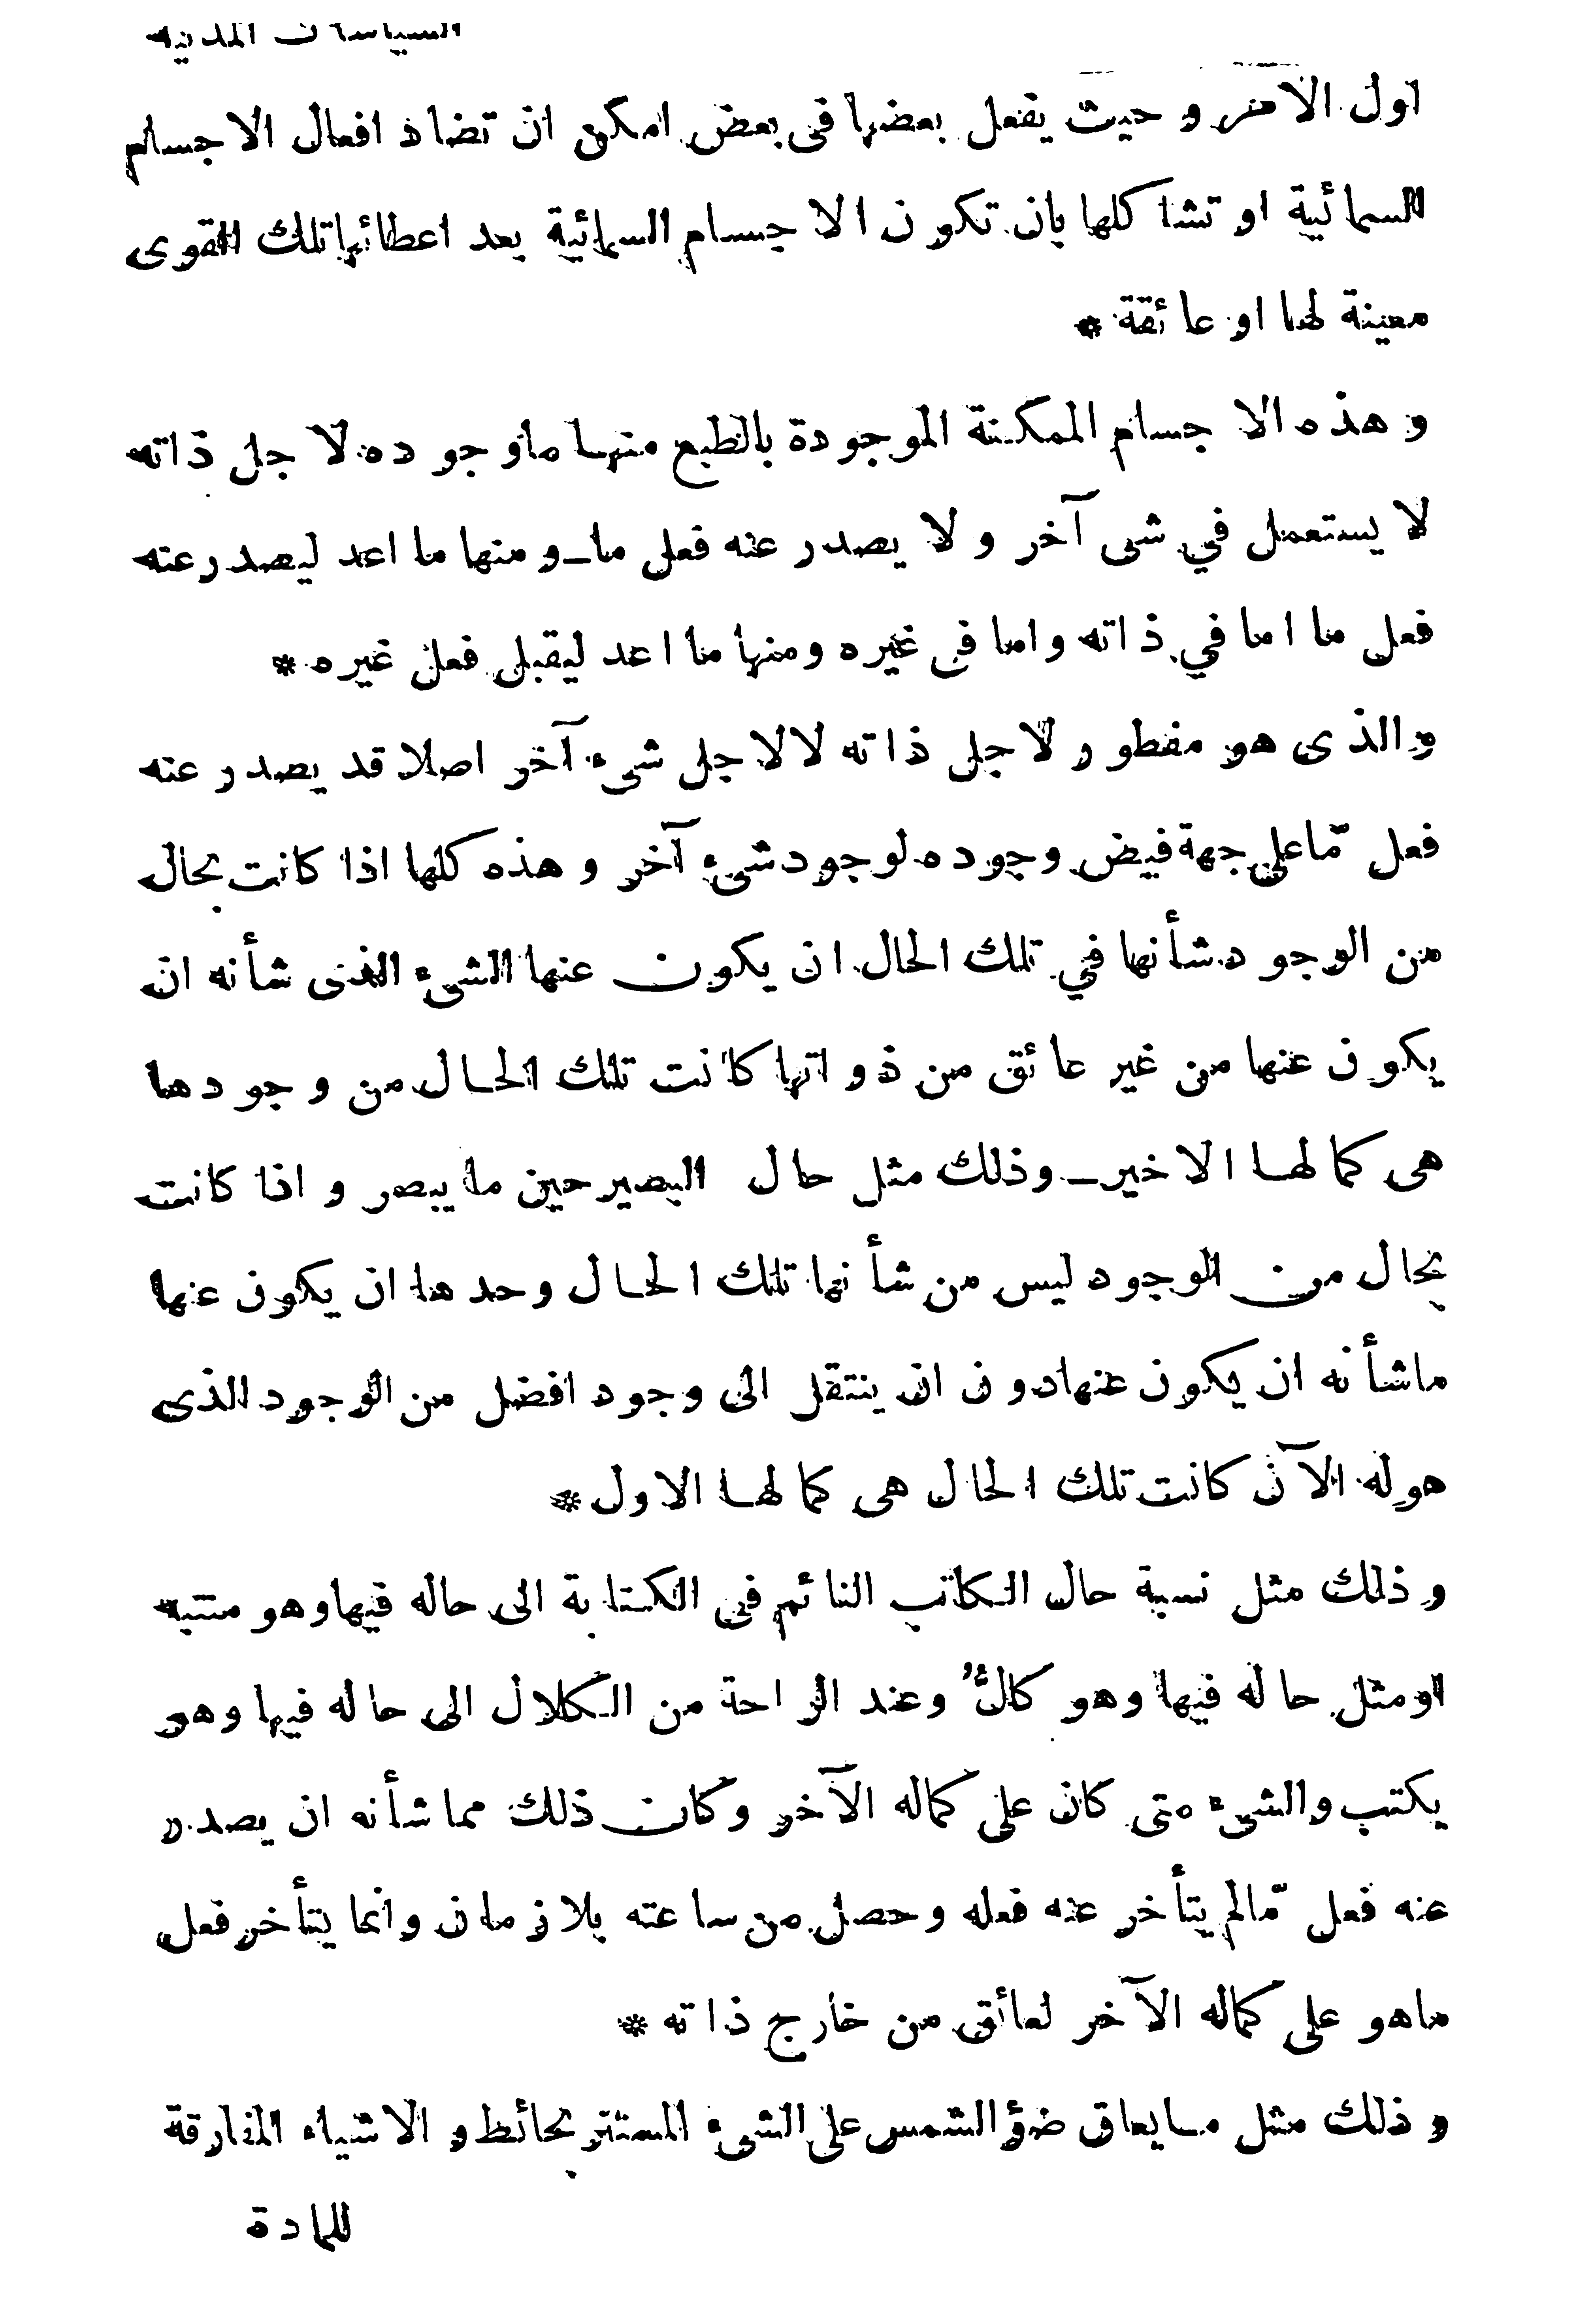 السياسات المدنية
اول الامر و حيث يفعل بعضها فى بعض امكن ان تضاد افعال الاجسام
السمائية او تشاكلها بان تكون الاجسام السمائية بعد اعطائها تلك القوى
معينة لها او عائقة *
و هذه الاجسام الممكنة الموجودة بالطبع منها ما وجوده لاجل ذاته
لا يستعمل في شى آخر و لا يصدر عنه فعل ما ـ و منها ما اعد ليصدر عنه
فعل ما اما في ذاته واما فى غيره ومنها ما اعد ليقبل فعل غيره *
و الذى هو مفطور لاجل ذاته لا لاجل شىء آخر اصلا قد يصدر عنه
فعل مّا على جهة فيض وجوده لوجود شىء آخر و هذه كلها اذا كانت بحال
من الوجود شأنها في تلك الحال ان يكون عنها الشىء الذى شأنه ان
يكون عنها من غير عائق من ذواتها كانت تلك الحال من وجودها
هى كمالها الاخير ـ وذلك مثل حال البصير حين ما يبصر و اذا كانت
بحال من الوجود ليس من شأنها تلك الحال وحدها ان يكون عنها
ما شأنه ان يكون عنها دون ان ينتقل الى وجود افضل من الوجود الذى
هو له الآن كانت تلك الحال هى كمالها الاول *
و ذلك مثل نسبة حال الكاتب النائم فى الكتابة الى حاله فيها وهو منتبه
او مثل حاله فيها وهو كالٌّ وعند الراحة من الكلال الى حاله فيها وهو
يكتب والشىء متى كان على كماله الآخر وكان ذلك مما شأنه ان يصدر
عنه فعل مّا لم يتأخر عنه فعله و حصل من ساعته بلا زمان وانما يتأخر فعل
ما هو على كماله الآخر لعائق من خارج ذاته *
و ذلك مثل ما يعاق ضؤ الشمس على الشىء المستتر بحائط و الاشياء المفارقة
للمادة